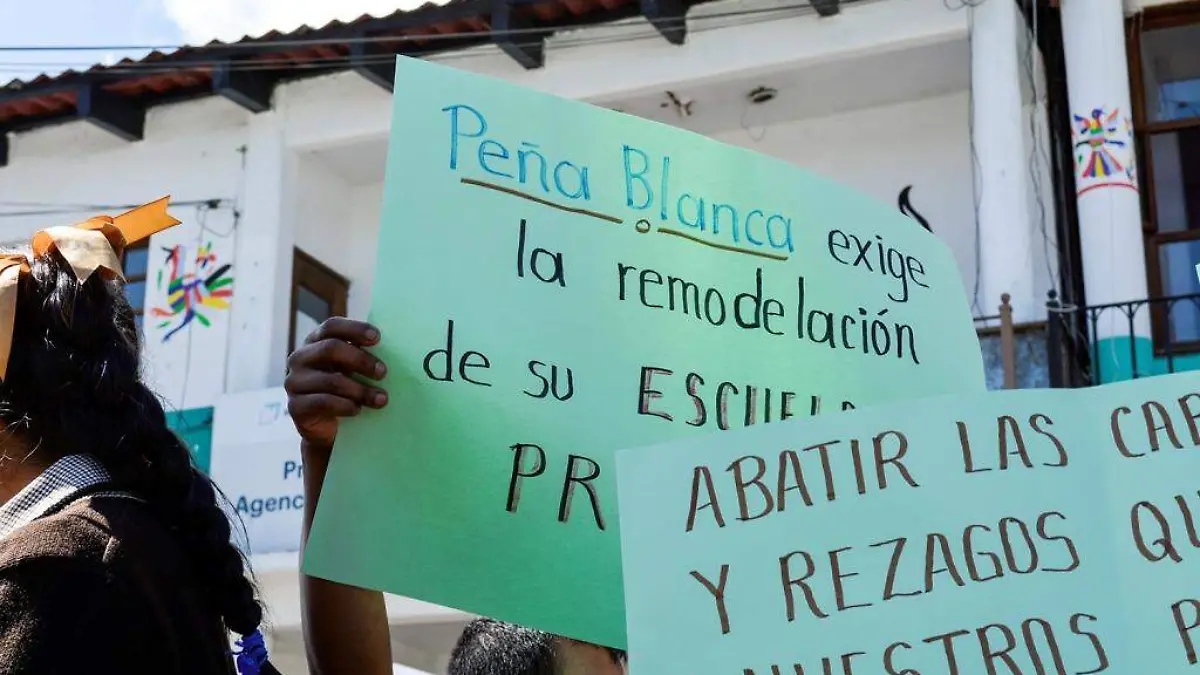 Peña Blanca exige
la remodelación
de su ESCUELA
PR
ABATIR LAS CAR
Y REZAGOS QU
NUESTROS P
Pr
Agenc